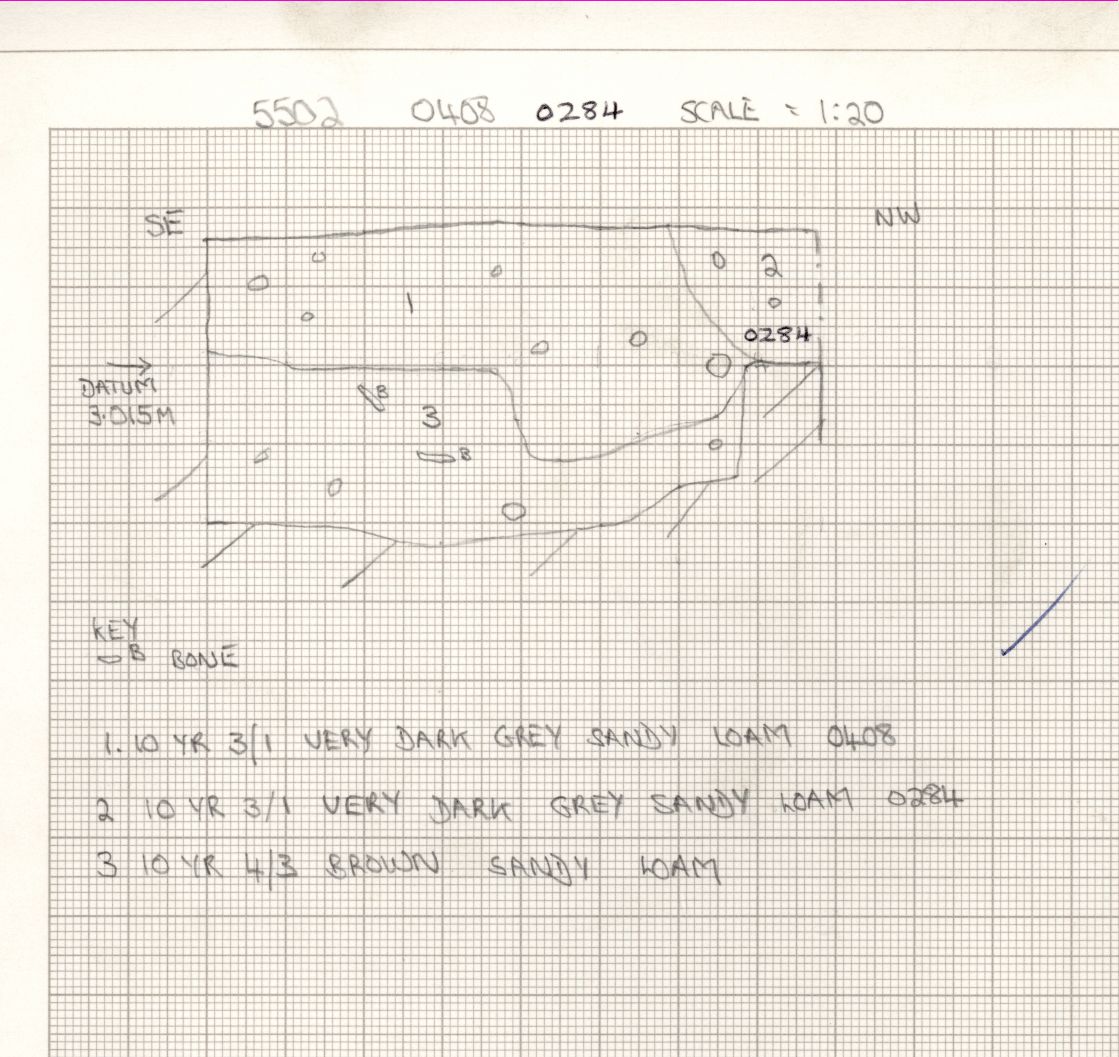 5502 0408 0284 SCALE = 1:20
SE NW
2
1
0284
DATUM
3.015M
B
3
B
KEY
B BONE
1. 10 YR 3/1 VERY DARK GREY SANDY LOAM 0408
2 10 YR 3/1 VERY DARK GREY SANDY LOAM 0284
3 10 YR 4/3 BROWN SANDY LOAM